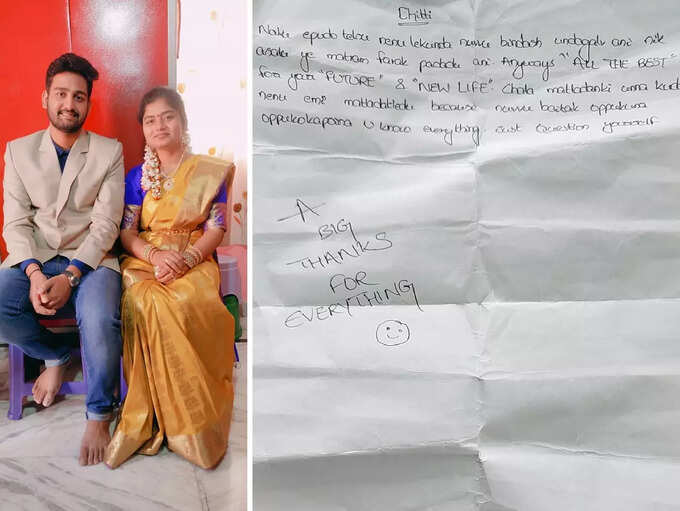 Chitti
Naku epudo telsu nenu lekunda nuvvu bindash undagalv ani nik
asalu ye matram farak padadu ani Anyways "ALL THE BEST"
for your "FUTURE" & "NEW LIFE" Chala matladanki unna kuda
nenu emi matladatledu because nuvvu baytak oppukuna
oppukokapoyna U know everything. Just Question yourself
A
BIG
THANKS
FOR
EVERYTHING